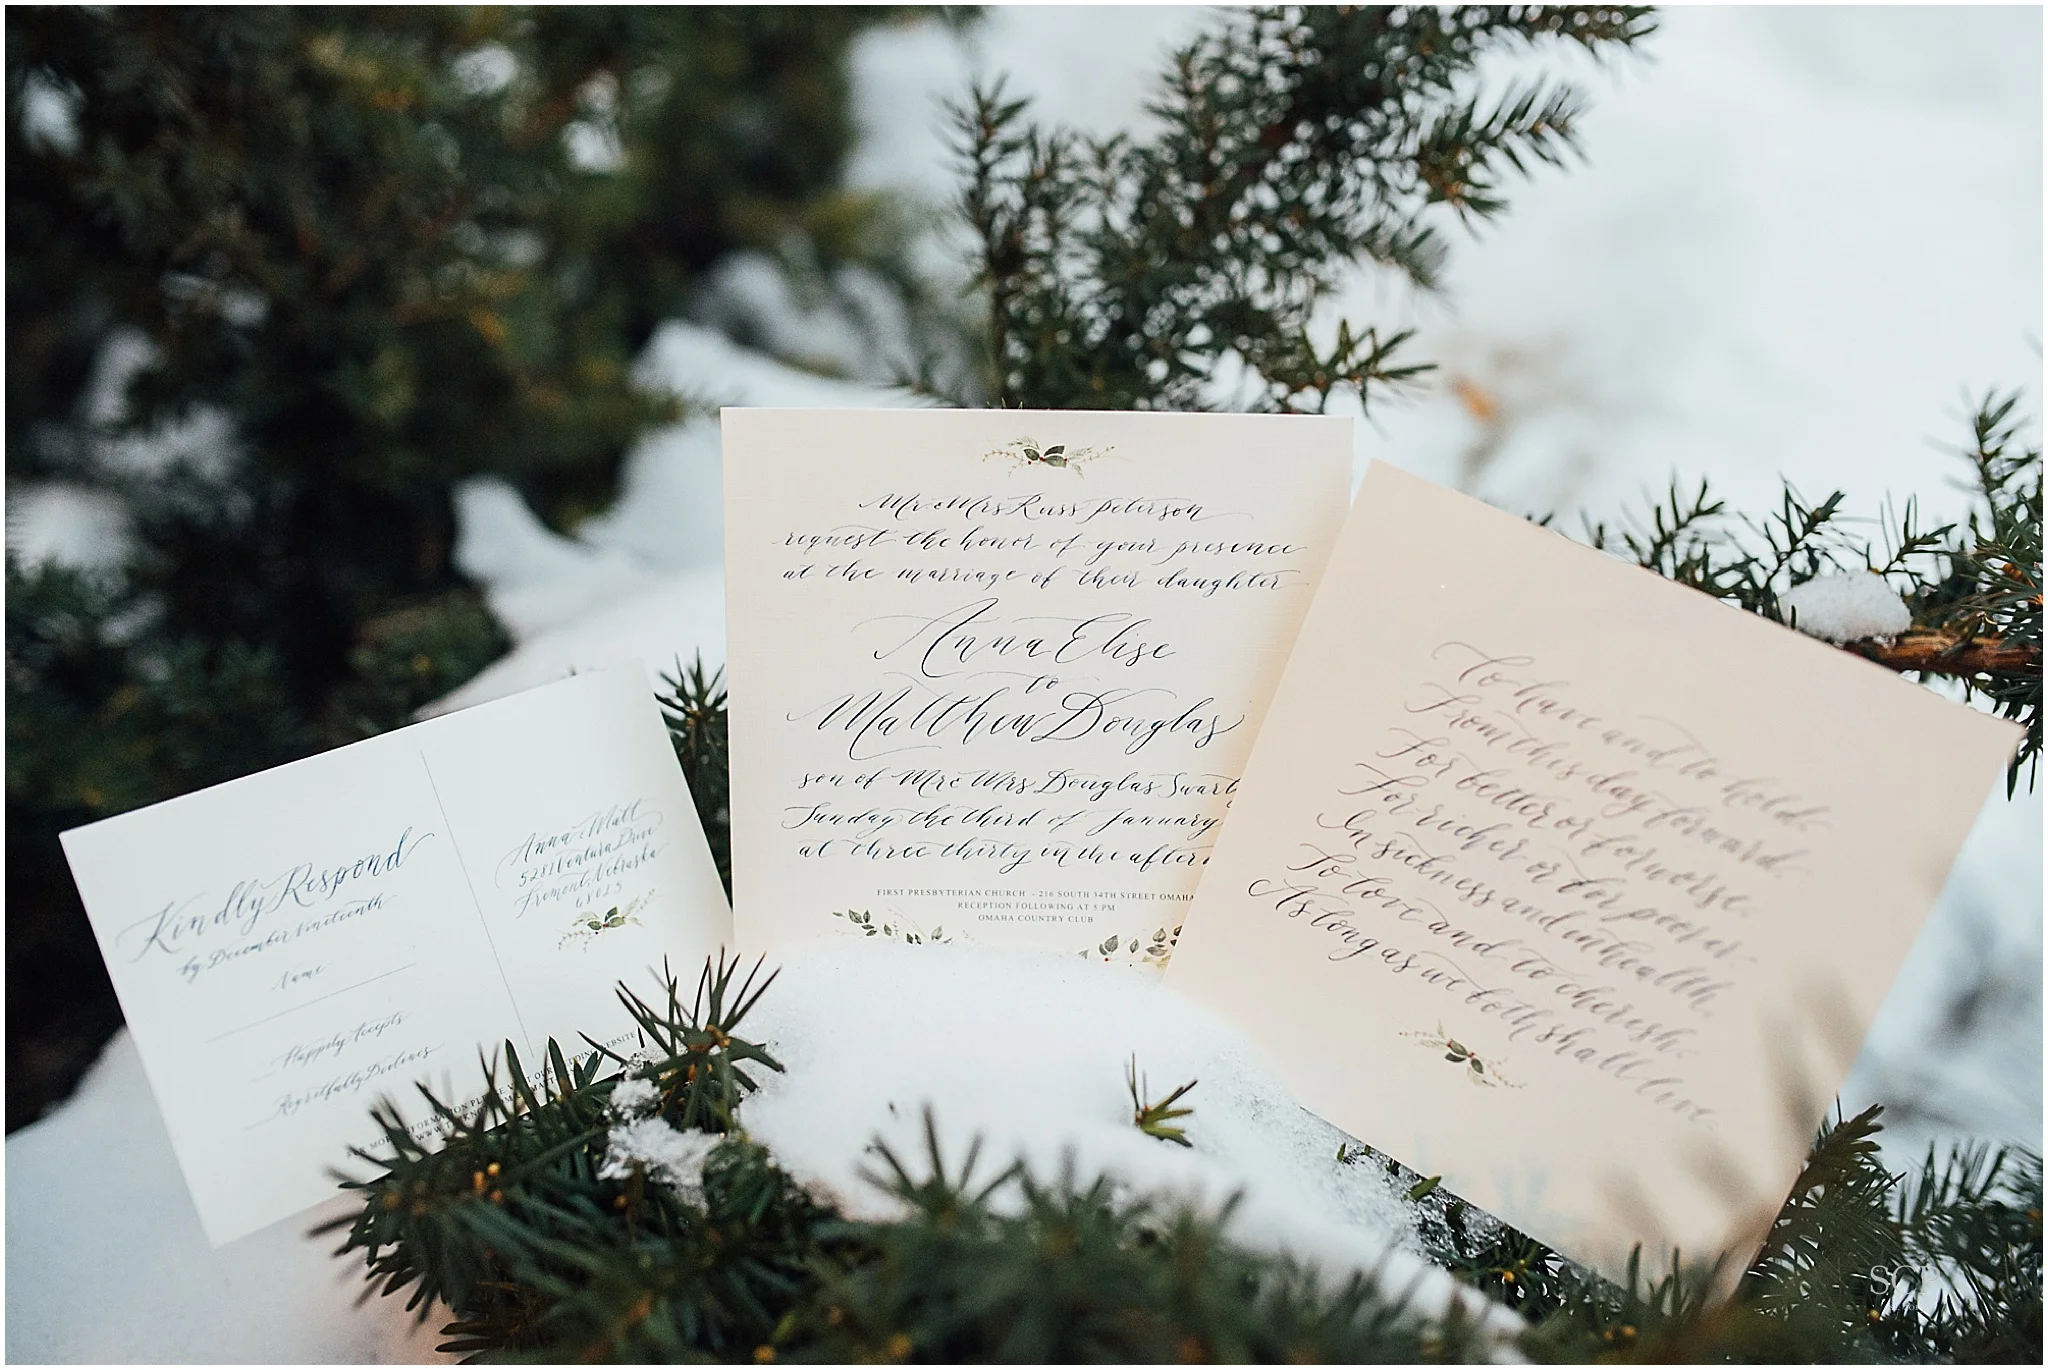 Kindly Respond
by December Nineteenth
Name
Happily Accepts
Regretfully Declines
MORE INFORMATION PLEASE VISIT OUR WEDDING WEBSITE
Anna & Matt
5281 Ventura Drive
Fremont, Nebraska
68025
Mr & Mrs Russ Peterson
request the honor of your presence
at the marriage of their daughter
Anna Elise
to
Matthew Douglas
son of Mr & Mrs Douglas Swartz
Sunday the third of January
at three thirty in the aftern
FIRST PRESBYTERIAN CHURCH - 216 SOUTH 34TH STREET OMAHA
RECEPTION FOLLOWING AT 5 PM
OMAHA COUNTRY CLUB
To have and to hold.
From this day forward.
For better or for worse.
For richer or for poorer.
In sickness and in health.
To love and to cherish.
As long as we both shall live.